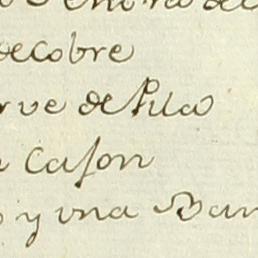 de Cobre
rve de Pila
Caſon
y una Ban